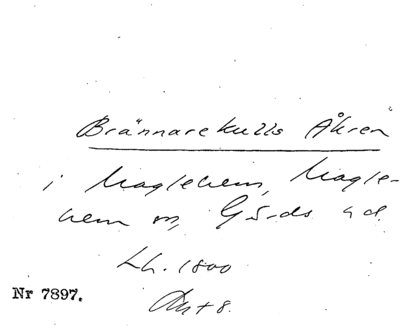 Brännarekulls Åkren
i Maglehem, Magle-
hem sn, Gärds hd.
Lh. 1800
Nr 7897. Akt 8.